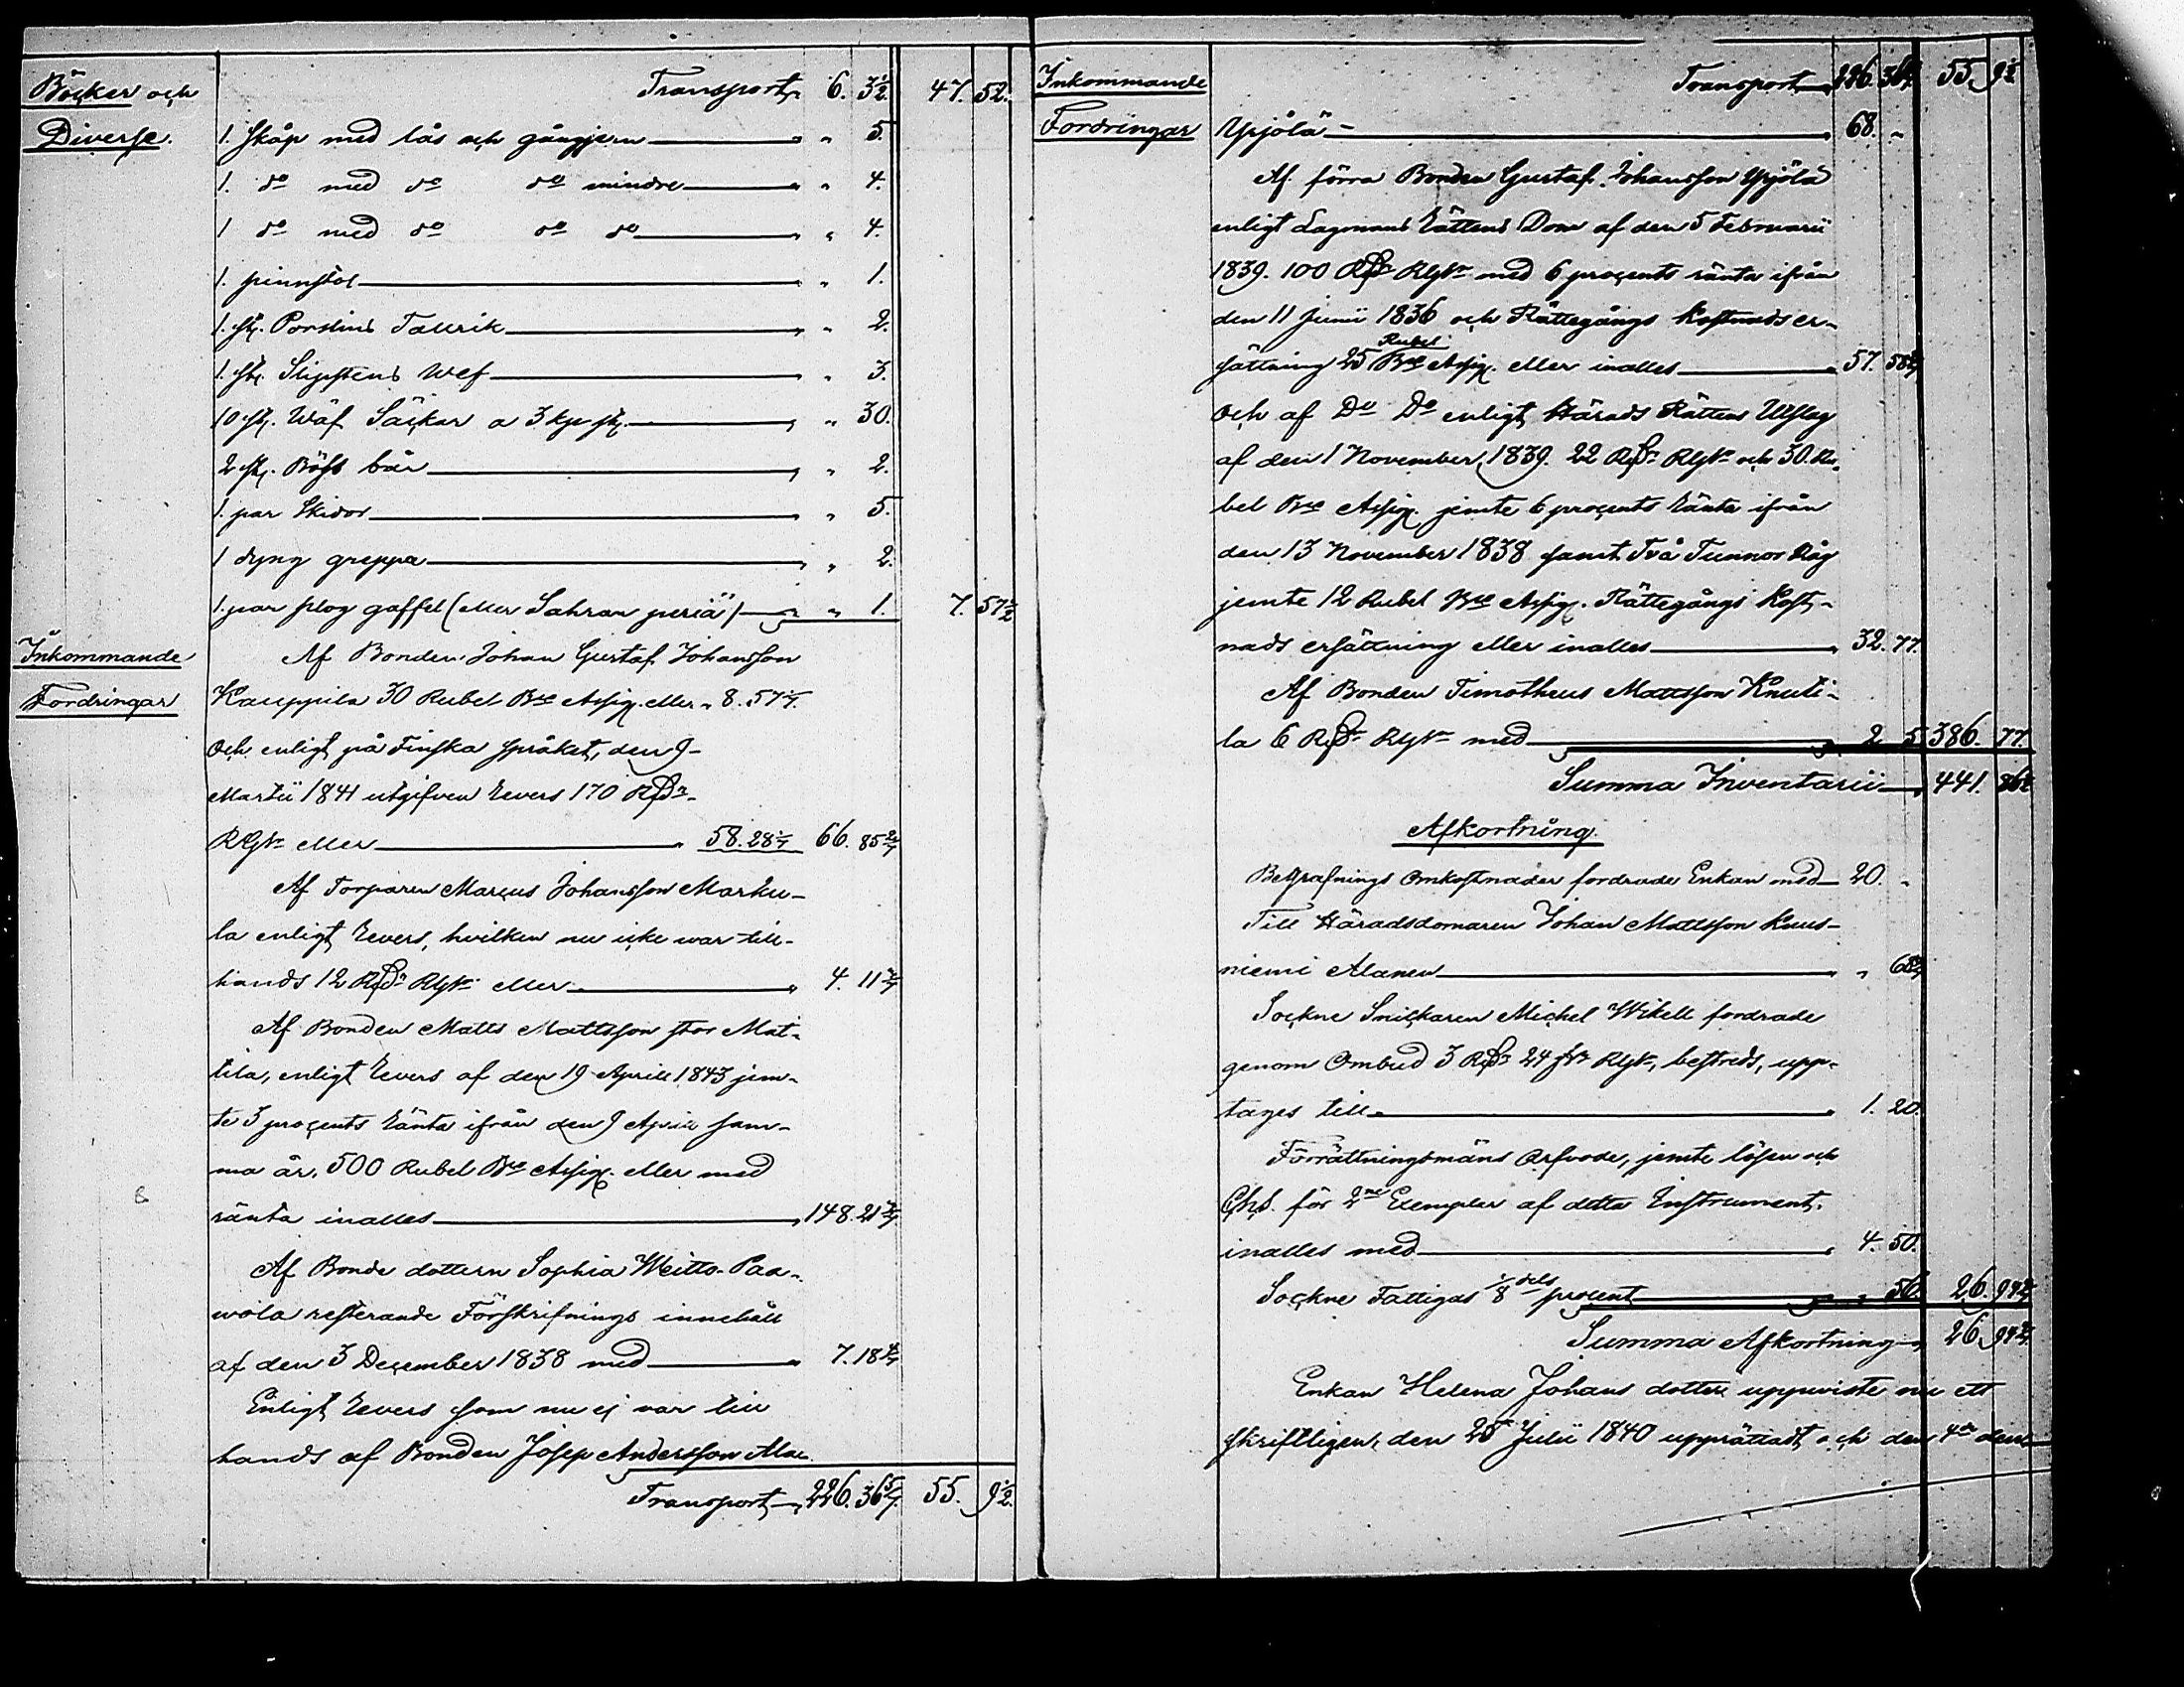 Böcker och Transport 6. 3½ 47. 52.
Diverse. 1. skåp med lås och gångjern " 5.
1. do med do do mindre " 4.
1 do med do do do " 4.
1. pinnstol " 1.
1. st. Porslins Tallrik " 2.
1. st. Slipstens Wef " 3.
10 st. Wäf Säckar a 3 kp st. " 30.
2 st. Böss bår " 2.
1. par Skidor " 5.
1 dyng greppa " 2.
1. par plog gaffel (eller Sahran periä) " 1. 7. 57½
Inkommande Af Bonden Johan Gustaf Johansson
Fordringar Kauppila 30 Rubel Bco Assig. eller 8. 57 1/7.
och enligt på Finska språket, den 9
Martii 1841 utgifven Revers 170 Rdr
RGs eller 58. 28 4/7 66. 85 5/7
Af Torparen Marcus Johansson Marku-
la enligt Revers, hvilken nu icke war till-
hands 12 Rdr RGs eller 4. 11 3/7
Af Bonden Matts Mattsson stor Mat-
tila, enligt Revers af den 19 Aprill 1843 jem-
te 3 procents Ränta ifrån den 9 April sam-
ma år. 500 Rubel Bco Assig. eller med
ränta inalles 148. 21 3/7
Af Bonde dottern Sophia Weitto-Paa-
wola resterande Förskrifnings innehåll
af den 3 December 1838 med 7. 18 2/7
Enligt Revers som nu ej var till
hands af Bonden Josep Andersson Ala-
Transport 226. 36 5/7. 55. 9½.
Inkommande Transport 226. 36 5/7 55. 9½
Fordringar Ypjölä 68. "
Af förra Bonden Gustaf Johansson Ypjölä
enligt Lagmans Rättens Dom af den 5 Februarii
1839. 100 Rdr RGs med 6 procents ränta ifrån
den 11 Junii 1836 och Rättegångs kostnads er-
Rubel
sättning 25 Bco Assig. eller inalles 57. 58
och af Do Do enligt Härads Rättens Utslag
af den 1 November 1839. 22 Rdr RGs och 30. Ru-
bel Bco Assig. jemte 6 procents Ränta ifrån
den 13 November 1838 samt Två Tunnor Råg
jemte 12 Rubel Bco Assig. Rättegångs kost-
nads ersättning eller inalles 32. 77.
Af Bonden Timotheus Mattsson Knuti-
la 6 Rdr RGs med 2 5 386. 77.
Summa Inventarii 441. 86½
Afkortning.
Begrafnings Omkostnader fordrade Enkan med 20. "
Till Häradsdomaren Johan Mattsson Kuus-
niemi Alanen " 68
Sockne Snickaren Michel Wikell fordrade
genom Ombud 3 Rdr 24 RGs, bestreds, upp-
tages till 1. 20.
Förrättningsmäns Arfvode, jemte lösen och
för 2ne Exemplar af detta Instrument.
inalles med 4. 50.
Sockne Fattigas 1/8 dels procent " 56. 26. 94
Summa Afkortning 26. 94
Enkan Helena Johans dotter uppwiste nu ett
skriftligen, den 25 Julii 1840 upprättadt och den 4de